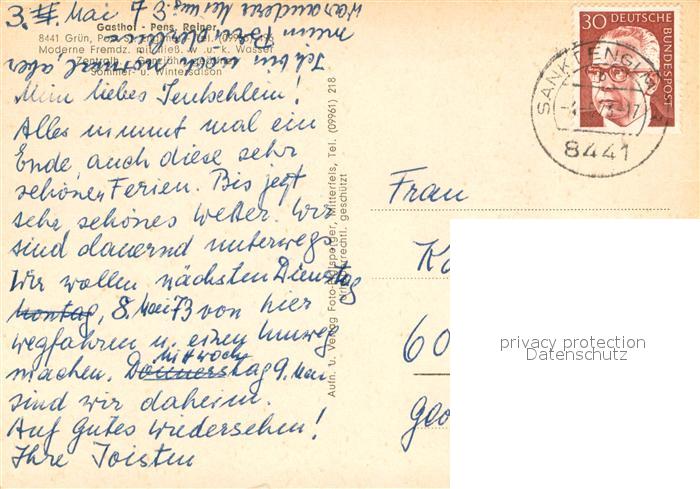 3. Mai 73.
Gasthof - Pens. Reiner
8441 Grün, Post
Moderne Fremdz. mit fließ. w. u. k. Wasser
Sommer- u. Wintersaison
Ich bin
mein
war anderer Meinung
Mein liebes
Alles nimmt mal ein
Ende, auch diese sehr
schönen Ferien. Bis jetzt
sehr schönes Wetter. Wir
sind dauernd unterwegs.
Wir wollen nächsten Dienstag
Montag, 8. Mai 73 von hier
wegfahren u. einen Umweg
machen. Mittwoch
Donnerstag 9. Mai
sind wir daheim.
Auf gutes Wiedersehen!
Ihre Joisten
Aufn. u. Verlag Foto- Mitterfels, Tel. (09961) 218
Urheberrechtl. geschützt
30 DEUTSCHE BUNDESPOST
SANKT ENGLMAR
8441
Frau
60
privacy protection
Datenschutz